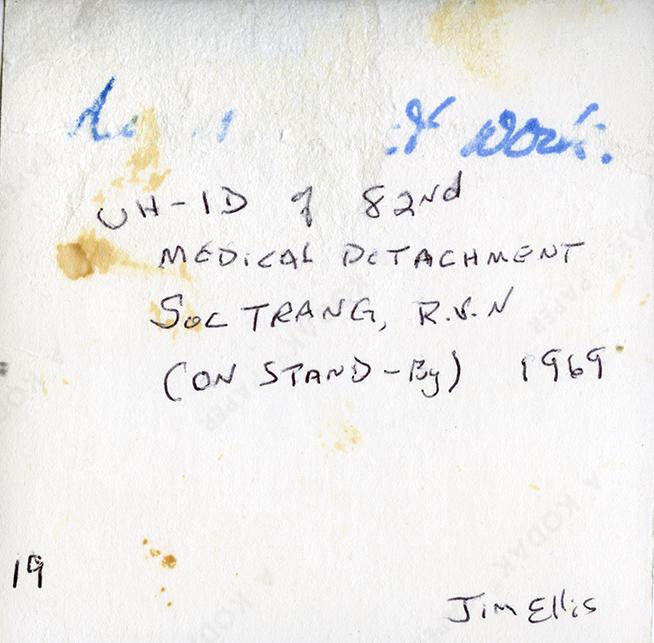 work.
UH-1D of 82nd
MEDICAL DETACHMENT
SOC TRANG, R.V.N
(ON STAND-By) 1969
19
Jim Ellis